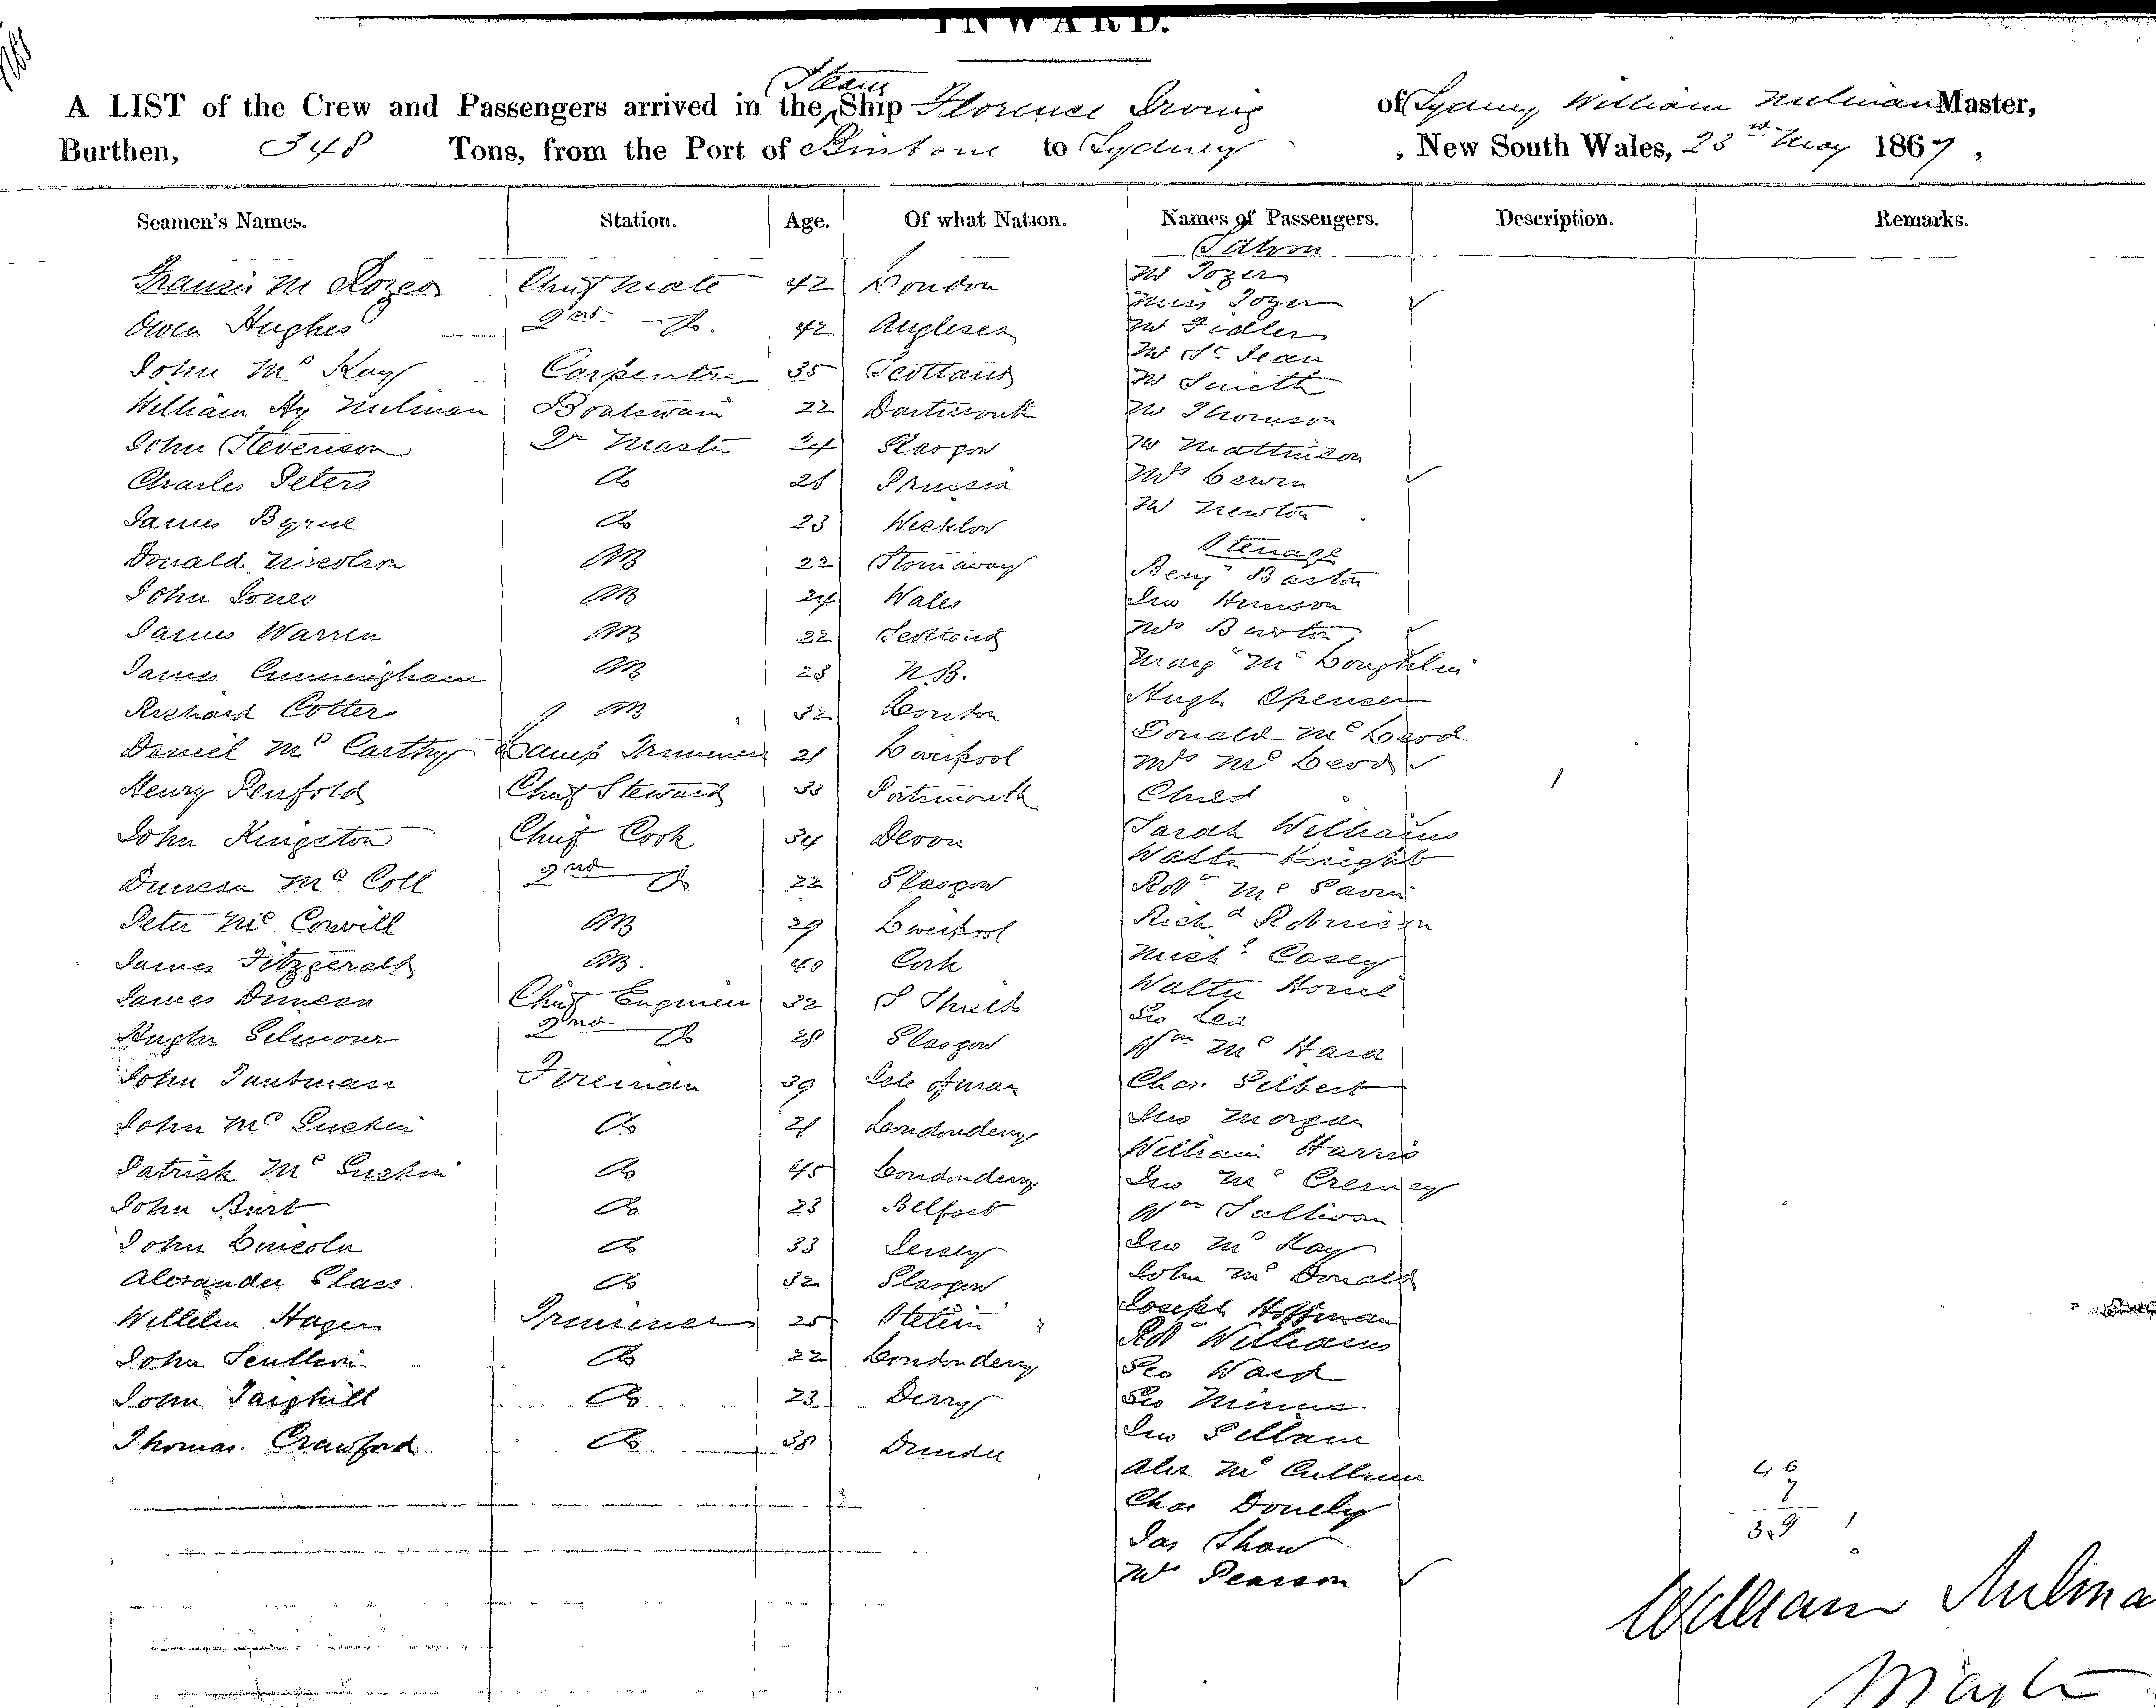 INWARD.
A LIST of the Crew and Passengers arrived in the Steam Ship Florence Irving of Sydney William Master,
Burthen, 348 Tons, from the Port of to Sydney , New South Wales, 23rd May 1867 ,
Seamen's Names. Station. Age. Of what Nation. Names of Passengers. Description. Remarks.
Saloon
Francis M Chief Mate 42 London Mr Tozer
Miss Tozer
Owen Hughes 2nd Do. 42 Anglesea Mr Fidler
Mr St Jean
John Mc Kay Carpenter 35 Scotland Mr Smith
William Hy Boatswain 22 Dartmouth Mr Thomson
John Stevenson Qr Master 24 Glasgow Mr Mattinson
Charles Peters Do 28 Prussia Mrs
James Byrne Do 23 Wicklow Mr Newton
Steerage
Donald Nicolson AB 22 Stornaway Benjn
John Jones AB 24 Wales Jno
James Warren AB 22 Scotland Mrs Burton
James Cunningham AB 28 N.B. Mary Mc Loughlin
Richard Cotter AB 32 London Hugh Spenser
Daniel Mc Carthy Lamp Trimmer 21 Liverpool Donald Mc Leod
Mrs Mc Leod
Henry Penfold Chief Steward 33 Portsmouth Child
John Kingston Chief Cook 34 Devon Sarah Williams
Duncan Mc Coll 2nd Do 22 Glasgow Walter Knight
Robt Mc
Peter Mc Convill AB 29 Liverpool Richd Robinson
James Fitzgerald AB. 40 Cork Michl Casey
James Duncan Chief Engineer 32 S Shields Walter
Hugh Gilmour 2nd Do 28 Glasgow Geo Lee
Wm Mc
John Tautman Fireman 39 Isle of Man Chas. Gilbert
John Mc Guckin Do 21 Londonderry Jno Morgan
William Harris
Patrick Mc Guckin Do 45 Londonderry Jno Mc
John Burt Do 23 Belfast Wm Sullivan
John Lincoln Do 33 Jersey Jno Mc Kay
Alexander Glass Do 32 Glasgow John Mc Donald
Joseph Hoffman
Hagen Trimmer 25 Stettin Robt Williams
John Scullion Do 22 Londonderry Geo Ward
John Do 23 Derry Geo
Jno Gillam
Thomas Crawford Do 38 Dundee Alex Mc Cullum
Chas Donelly
Jas Shaw
Mr Pearson
46
7
39
William
Master